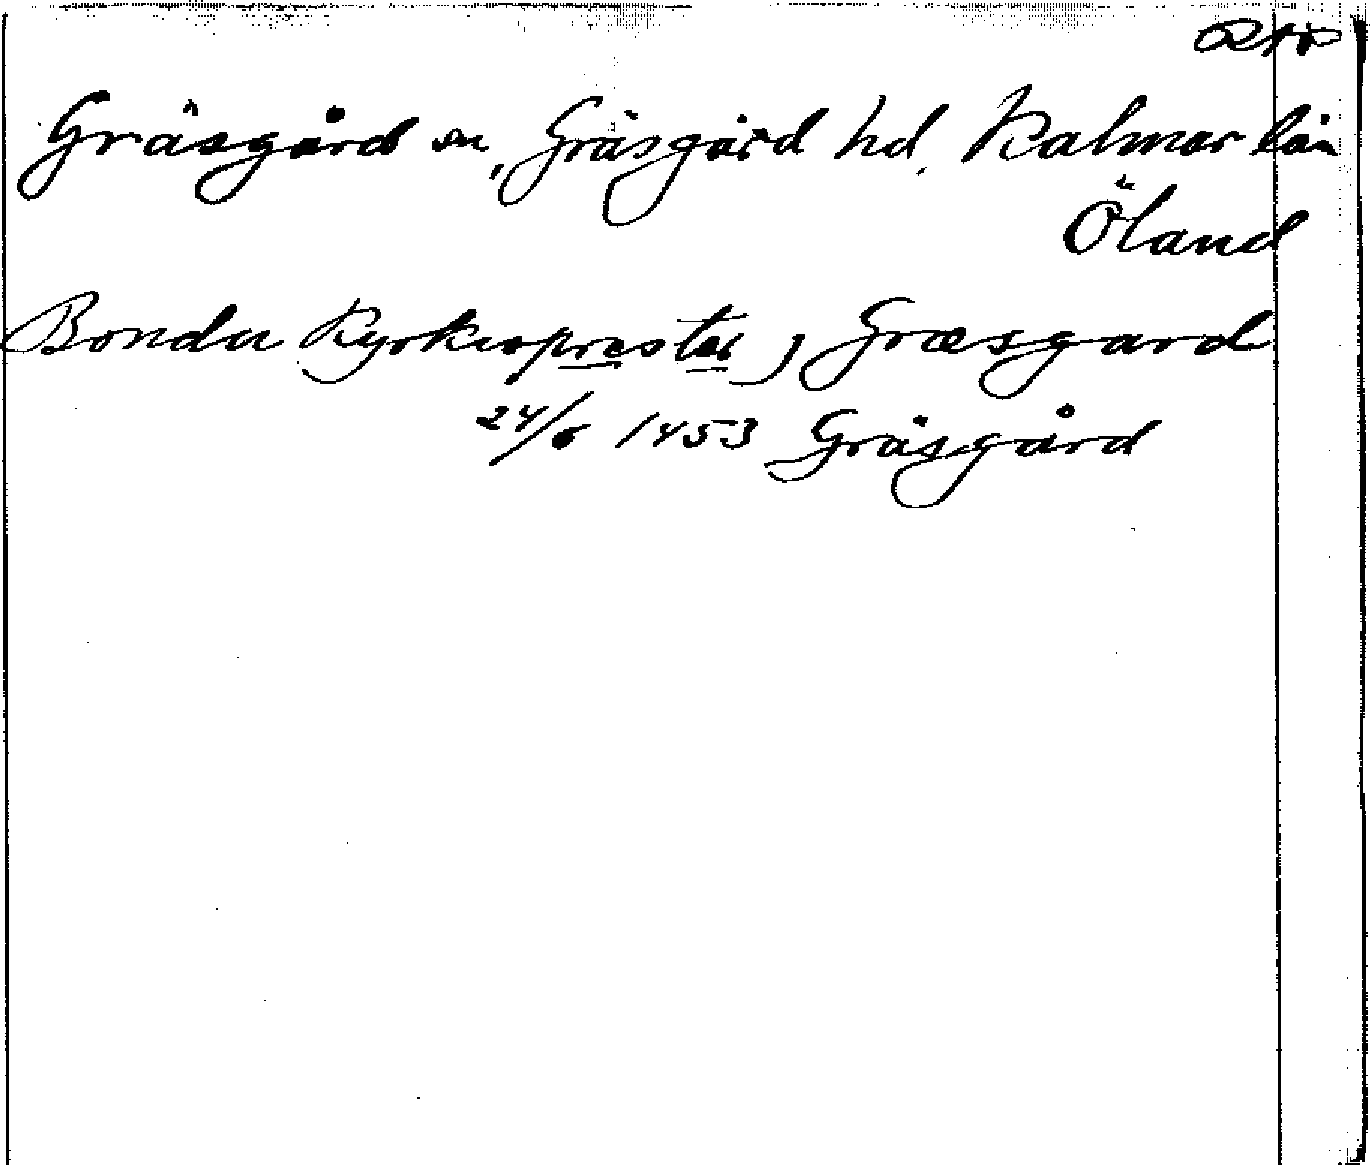 Gräsgård sn, Gräsgård hd, Kalmar län
Öland
Bonda Kyrkioprestar j Græsgard
24/6 1453 Gräsgård